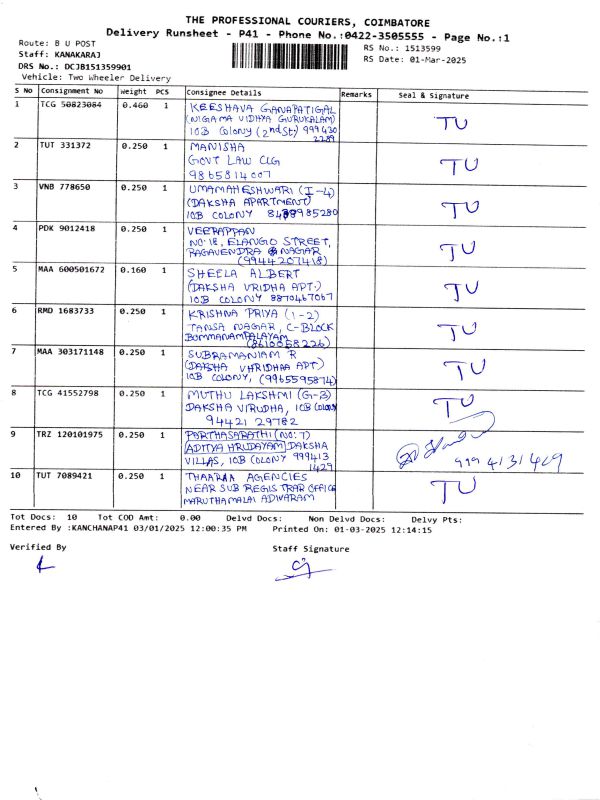 THE PROFESSIONAL COURIERS, COIMBATORE
Delivery Runsheet - P41 - Phone No.:0422-3505555 - Page No.:1
Route: B U POST
RS No.: 1513599
Staff: KANAKARAJ
RS Date: 01-Mar-2025
DRS No.: DCJB151359901
Vehicle: Two Wheeler Delivery
S No Consignment No Weight PCS Consignee Details Remarks Seal & Signature
1 TCG 50823084 0.460 1 KEESHAVA GANAPATIGAL
(NIGAMA VIDHYA GURUKALAM)
10B Colony (2nd St;) 999430
2289
TU
2 TUT 331372 0.250 1 MANISHA
GOVT LAW CLG
9865814007
TU
3 VNB 778650 0.250 1 UMAMAHESHWARI (I-4)
(DAKSHA APARTMENT)
10B COLONY
TU
4 PDK 9012418 0.250 1 VEERAPPAN
NO:18, ELANGO STREET,
RAGAVENDRA NAGAR
(9944207418)
TU
5 MAA 600501672 0.160 1 SHEELA ALBERT
(DAKSHA VRIDHA APT.)
10B COLONY 8870467067
TU
6 RMD 1683733 0.250 1 KRISHNA PRIYA (1-2)
TANSA NAGAR, C-BLOCK
BOMMANAMPALAYAM
(8610058226)
TU
7 MAA 303171148 0.250 1 SUBRAMANIAM R
(DAKSHA VHRIDHAA APT)
10B COLONY, (9965595874)
TU
8 TCG 41552798 0.250 1 MUTHU LAKSHMI (G-3)
DAKSHA VIRUDHA, 10B COLONY
94421 29782
TU
9 TRZ 120101975 0.250 1 PARTHASARATHI (NO:7)
ADITYA HRUDAYAM DAKSHA
VILLAS, 10B COLONY 999413
1429
9994131429
10 TUT 7089421 0.250 1 THAARAA AGENCIES
NEAR SUB REGISTRAR OFFICE
MARUTHAMALAI ADIVARAM
TU
Tot Docs: 10 Tot COD Amt: 0.00 Delvd Docs: Non Delvd Docs: Delvy Pts:
Entered By :KANCHANAP41 03/01/2025 12:00:35 PM Printed On: 01-03-2025 12:14:15
Verified By Staff Signature